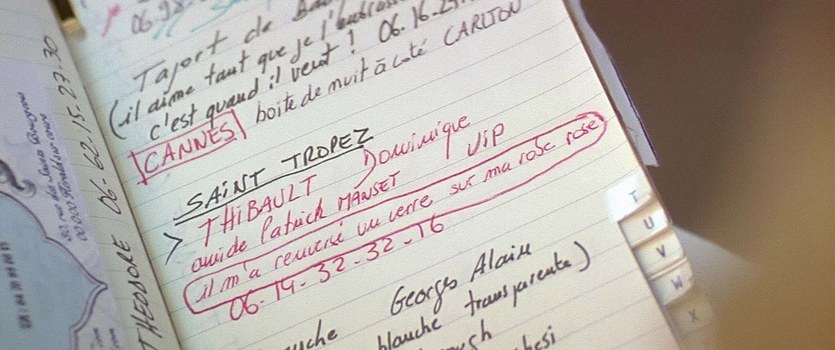 06.98-
Taport de
(il aime tant que je l'embrasse
c'est quand il veut ! 06.16.
CANNES boite de nuit à côté CARLTON
SAINT TROPEZ
> THIBAULT Dominique
amide Patrick MANSET / ViP
il m'a renversé un verre sur ma robe rose
06-14-32-32-16
Georges Alain
blanche transparente)
THEODORE 06-62.15.27.30
T
U
V
W
X